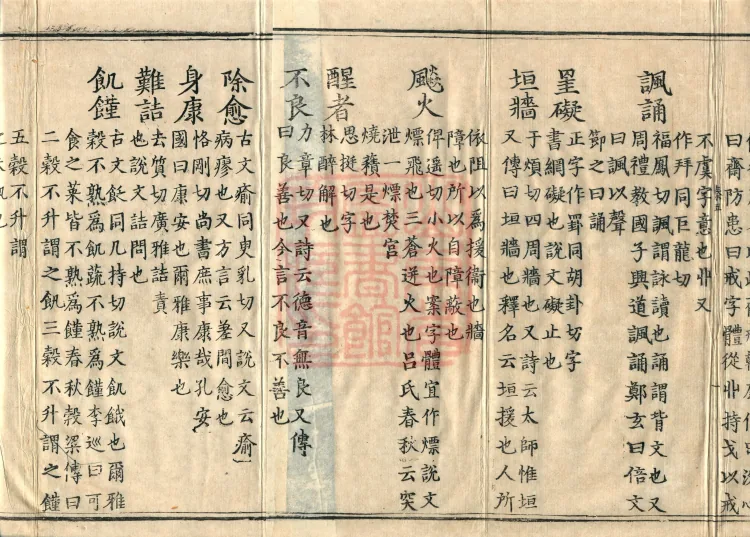 曰齋防患曰戒字體從廾持戈以戒
不虞字意也廾又
作拜同巨龍切
諷誦
福鳳切諷謂詠讀也誦謂背文也又
周禮教國子興道諷誦鄭玄曰倍文
曰諷以聲
節之曰誦
罣礙
正字作罫同胡卦切字
書網礙也說文礙止也
垣牆
于煩切四周牆也又詩云太師惟垣
又傳曰垣牆也釋名云垣援也人所
依阻以為援衛也牆
障也所以自障蔽也
飈火
俾遥切小火也案字體宜作熛說文
熛飛也三蒼迸火也吕氏春秋云突
泄一熛焚宫
燒積是也
醒者
思挺切字
林醉解也
不良
力章切又詩云德音無良又傳
曰良善也今言不良不善也
除愈
古文瘉同臾乳切又說文云瘉
病瘳也又方言云差間愈也
身康
恪剛切尚書庶事康哉孔安
國曰康安也爾雅康樂也
難詰
去質切廣雅詰責
也說文詰問也
飢饉
古文飤同几持切說文飢餓也爾雅
穀不熟為飢蔬不熟為饉李巡曰可
食之菜皆不熟為饉春秋穀梁傳曰
二穀不升謂之飢三穀不升謂之饉
五穀不升謂